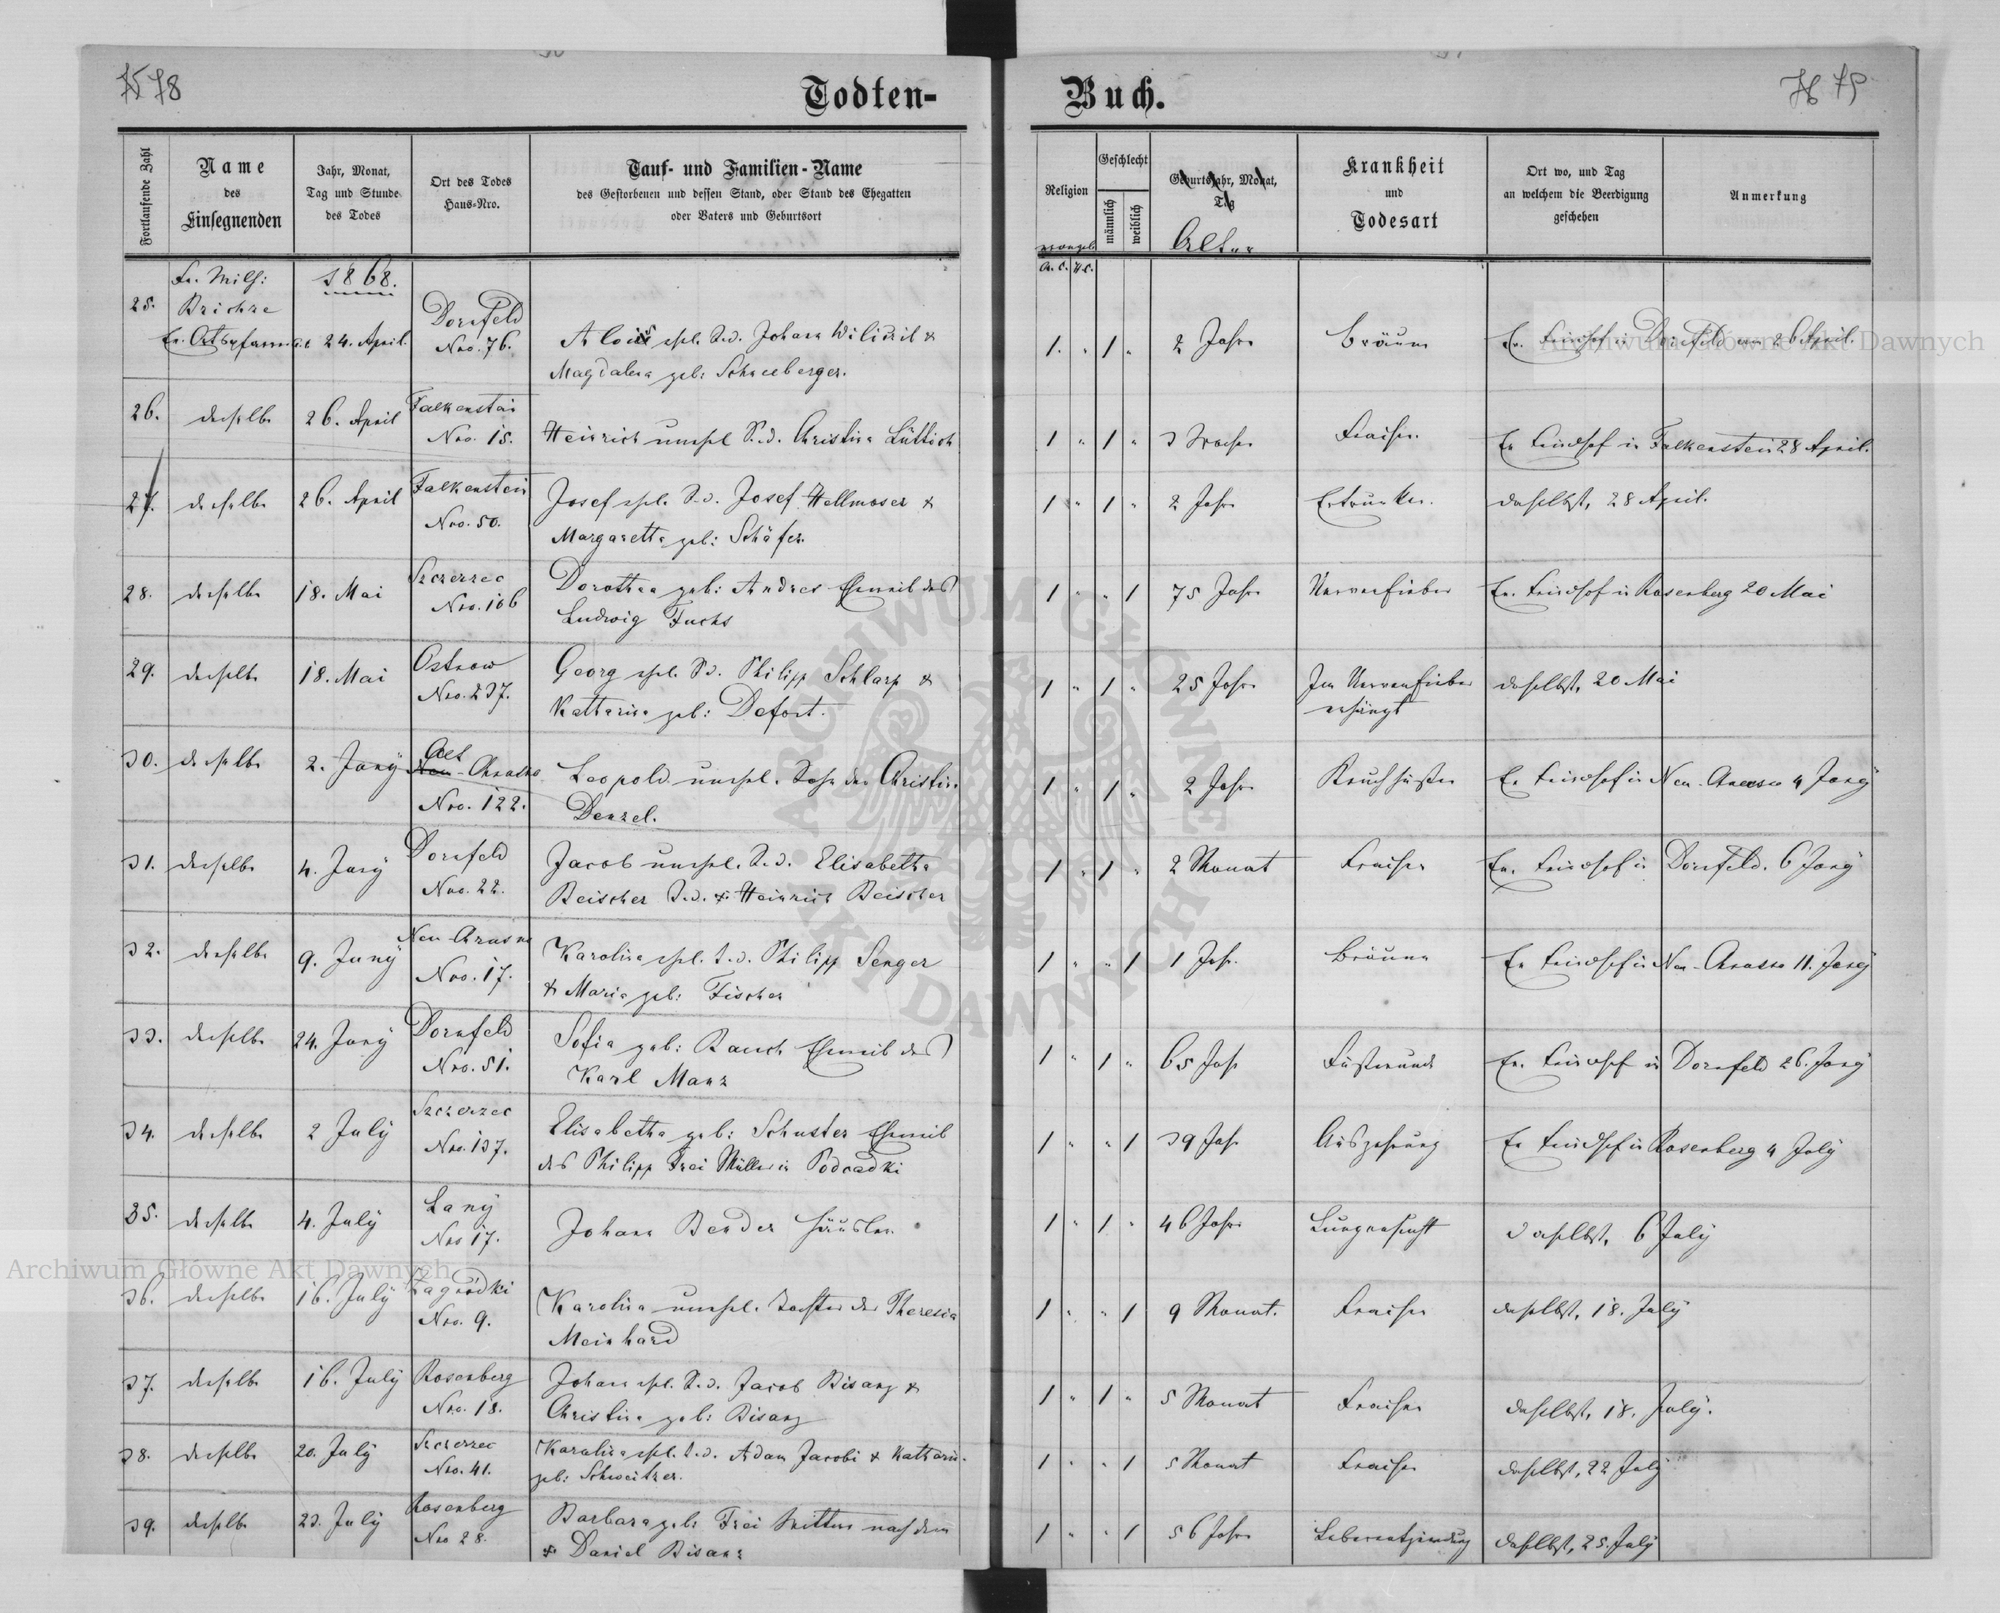 78
Todten-
Fortlaufende Zahl
Name
des
Einsegnenden
Jahr, Monat,
Tag und Stunde
des Todes
Ort des Todes
Haus-Nro.
Tauf- und Familien-Name
des Gestorbenen und dessen Stand, oder Stand des Ehegatten
oder Vaters und Geburtsort
1868.
25.
24. April.
Dornfeld
Nro. 76.
Alois ehl. S. d. Johann Wiliczil &
Magdalena geb: Schneeberger.
26. derselbe 26. April Falkenstein
Nro. 15.
Heinrich unehl S. d. Christina Lüttich
27. derselbe 26. April Falkenstein
Nro. 50.
Josef ehl. S. d. Josef Hellmoser &
Margaretha geb: Schäfer.
28. derselbe 18. Mai Szczerzec
Nro. 106
Dorothea geb: Andres Eheweib des
Ludwig Fuchs
29. derselbe 18. Mai Ostrow
Nro. 237.
Georg ehl. S. d. Philipp Schlarp &
Kattarina geb: Defort.
30. derselbe 2. Juny Alt
Neu-Chrusno
Nro. 122.
Leopold unehl. Sohn der Christina
Denzel.
31. derselbe 4. Juny Dornfeld
Nro. 22.
Jacob unehl. S. d. Elisabetha
Beischer S. d. Heinrich Beischer
32. derselbe 9. Juny Neu-Chrusno
Nro. 17.
Karolina ehl. T. d. Philipp Senger
& Maria geb: Fischer
33. derselbe 24. Juny Dornfeld
Nro. 51.
Sofia geb: Rauch Eheweib des
Karl Manz
34. derselbe 2 July Szczerzec
Nro. 137.
Elisabetha geb: Schuster Eheweib
des Philipp Frei Müller in Podsadki
35. derselbe 4. July Lany
Nro 17.
Johann Bender Häusler.
36. derselbe 16. July Zagrodki
Nro. 9.
Karolina unehl. Tochter der Theresia
Meinhard
37. derselbe 16. July Rosenberg
Nro. 18.
Johann ehl. S. d. Jacob Bisanz &
Christina geb: Bisanz
38. derselbe 20. July Szczerzec
Nro. 41.
Karolina ehl. T. d. Adam Jacobi & Kattarina
geb: Schweitzer.
39. derselbe 23. July Rosenberg
Nro 28.
Barbara geb: Frei Wittwe nach dem
Daniel Bisanz
Buch.
Religion
Geschlecht
männlich
weiblich
Geburtsjahr, Monat,
Tag
Alter
Krankheit
und
Todesart
Ort wo, und Tag
an welchem die Beerdigung
geschehen
Anmerkung
evangel.
A. C. H. C.
1 1 2 Jahre Bräune Ev. Friedhof in Dornfeld am 26 April.
1 1 3 Wochen Fraisen Ev. Friedhof in Falkenstein 28 April.
1 1 2 Jahre Ertrunken. daselbst, 28 April.
1 1 75 Jahre Nervenfieber Ev. Friedhof in Rosenberg 20 Mai
1 1 25 Jahre Im Nervenfieber
erhängt
daselbst, 20 Mai
1 1 2 Jahre Keuchhusten Ev. Friedhof in Neu-Chrusno 4 Juny
1 1 2 Monat Fraisen Ev. Friedhof in Dornfeld. 6 Juny
1 1 1 Jahr. Bräune Ev. Friedhof in Neu-Chrusno 11. Juny
1 1 65 Jahr Ev. Friedhof in Dornfeld 26. Juny
1 1 39 Jahr Auszehrung Ev. Friedhof in Rosenberg 4 July
1 1 46 Jahre Lungensucht daselbst, 6 July
1 1 9 Monat. Fraisen daselbst, 18. July
1 1 5 Monat Fraisen daselbst, 18. July.
1 1 5 Monat Fraisen daselbst, 22 July
1 1 56 Jahre Leberentzündung daselbst, 25. July
Archiwum Główne Akt Dawnych
Archiwum Główne Akt Dawnych
ARCHIWUM GŁÓWNE
AKT DAWNYCH